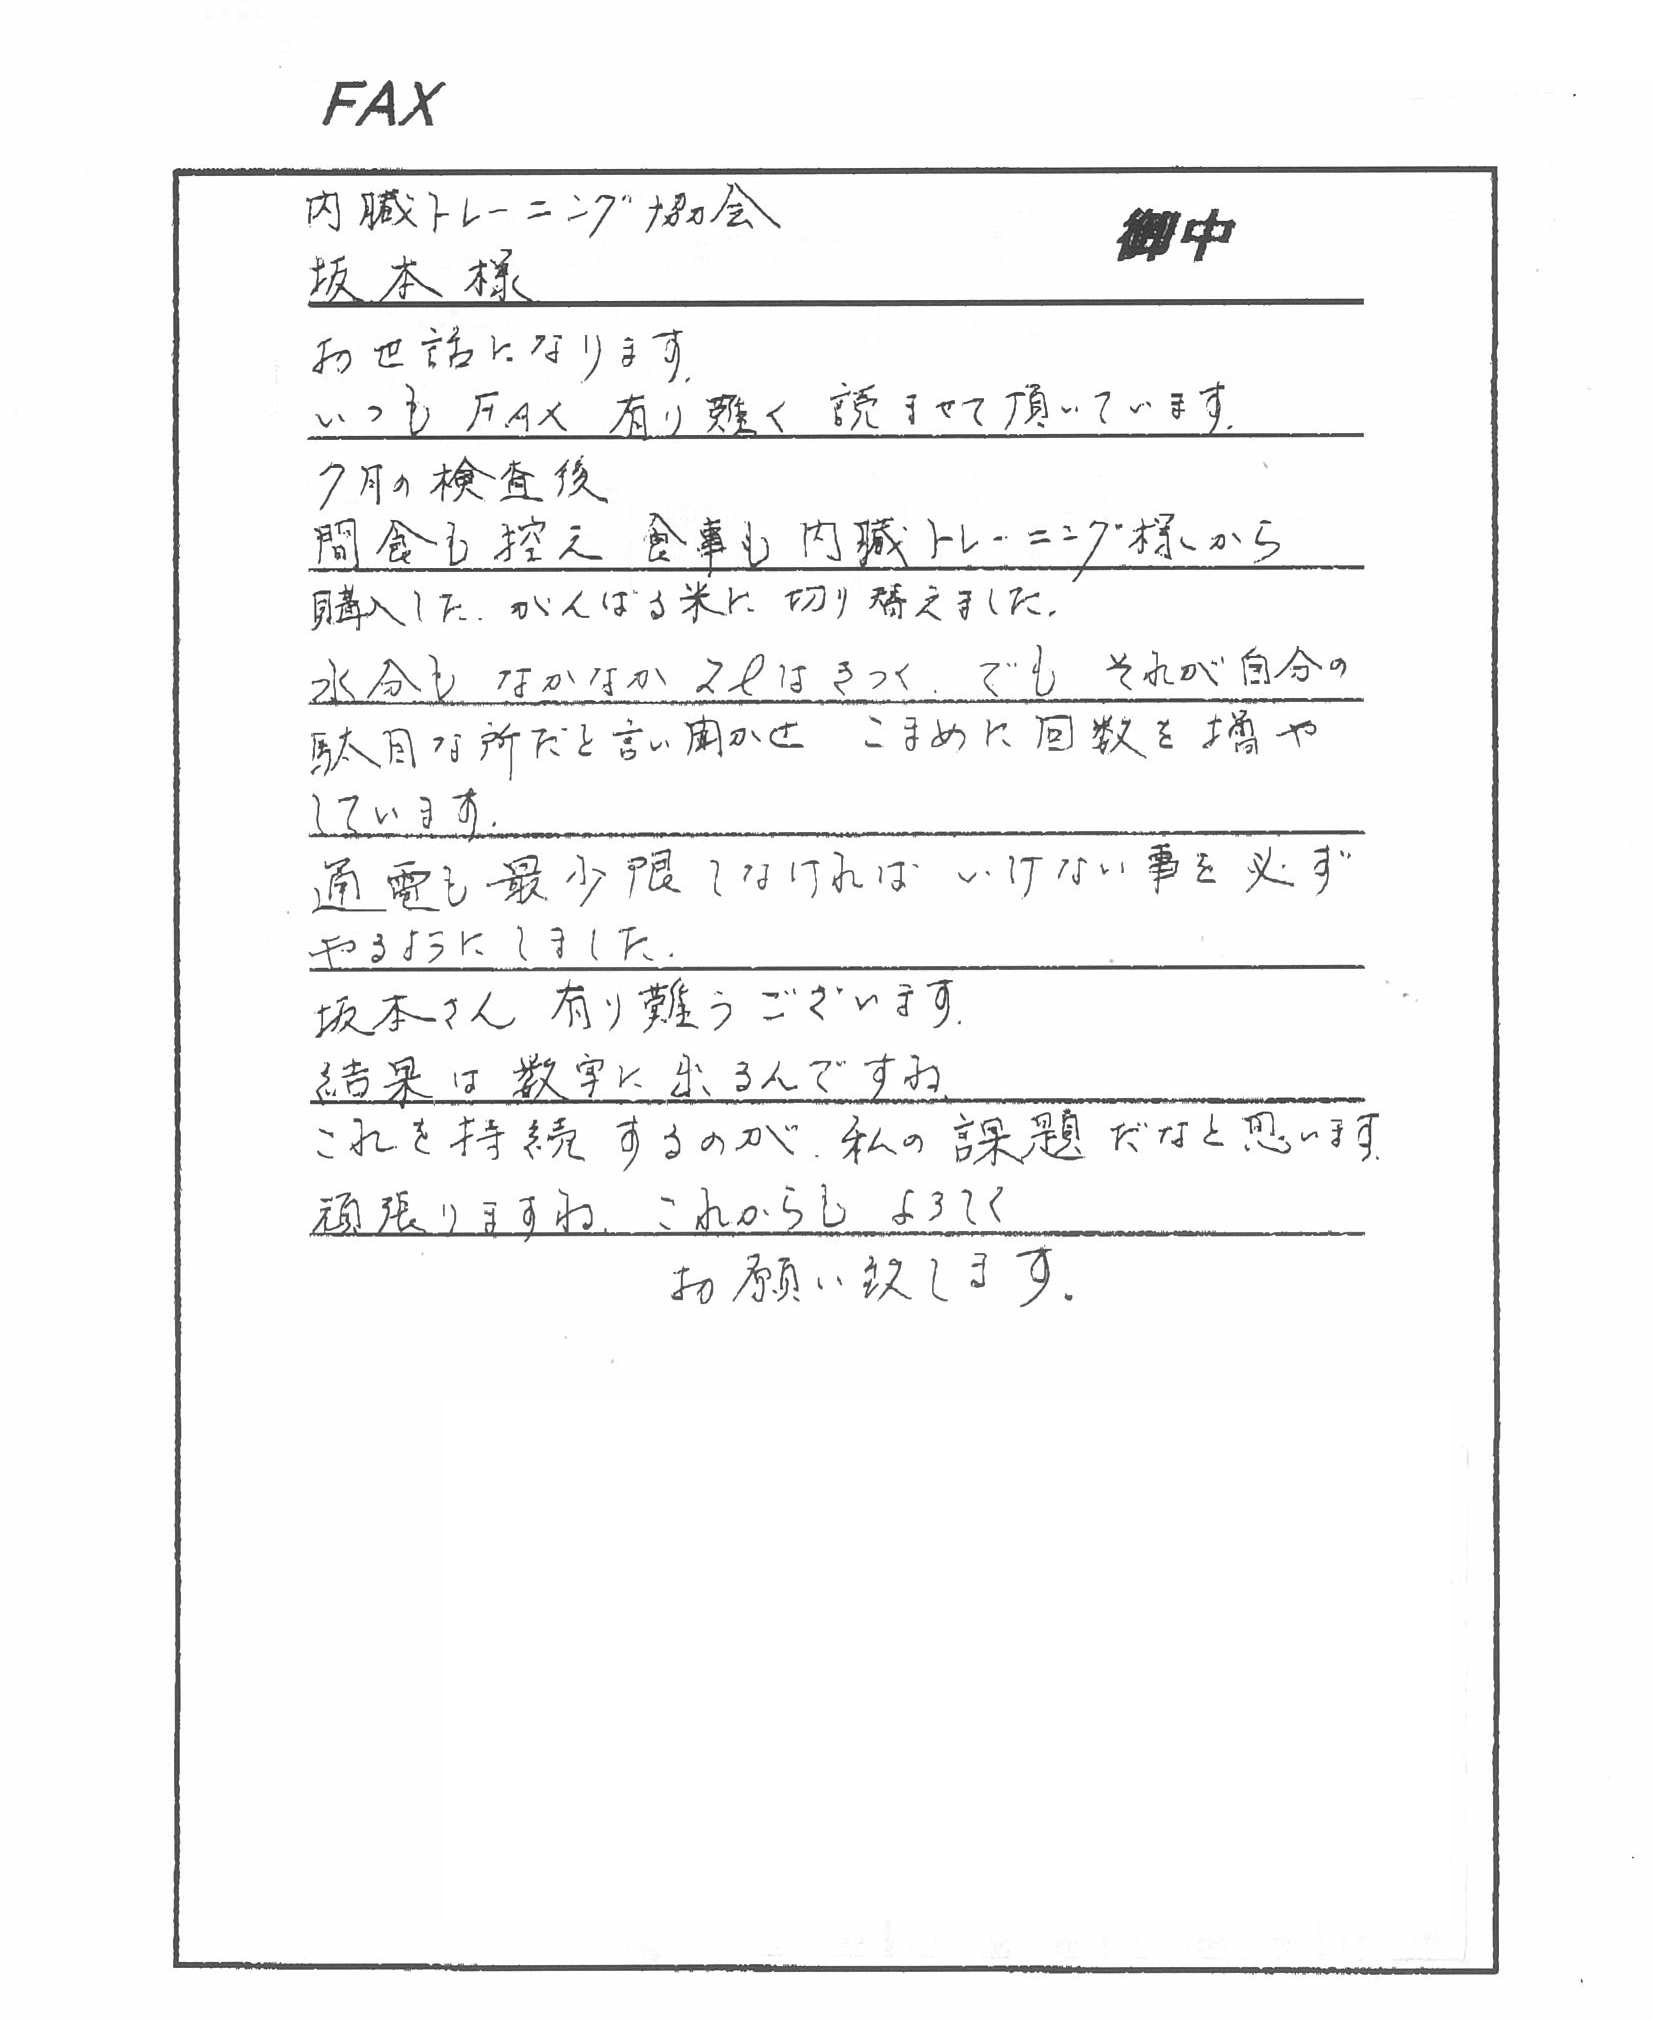 FAX
内臓トレーニング協会 御中
坂本様
お世話になります.
いつもFAX 有り難く 読ませて頂いています.
7月の検査後
間食も控え 食事も内臓トレーニング様から
購入した.がんばる米に切り替えました.
水分も なかなか2ℓはきつく.でも それが自分の
駄目な所だと言い聞かせ こまめに回数を増や
しています.
通電も最少限しなければ いけない事を必ず
やるようにしました.
坂本さん 有り難うございます.
結果は数字に出るんですね.
これを持続するのが.私の課題だなと思います.
頑張りますね. これからも よろしく
お願い致します.